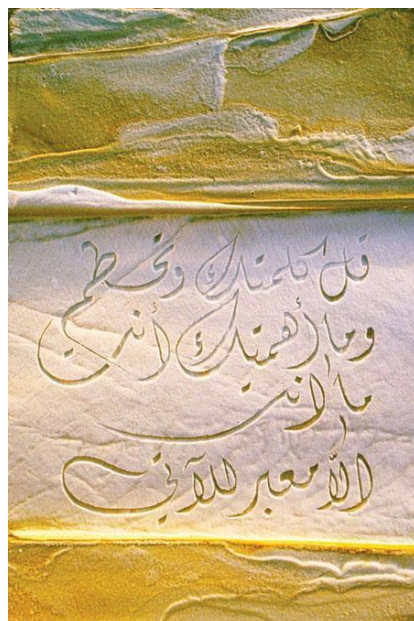 قل كلمتك وتحطم
وما أهميتك أنت
ما أنت
إلاّ معبر للآتي